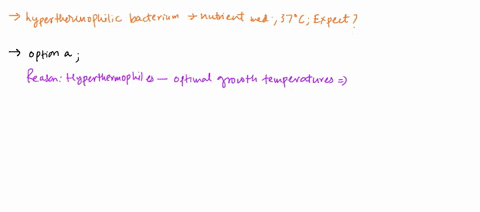 → hyperthermophilic bacterium → nutrient med., 37°C; Expect?
→ option a;
Reason: Hyperthermophiles — optimal growth temperatures ⇒